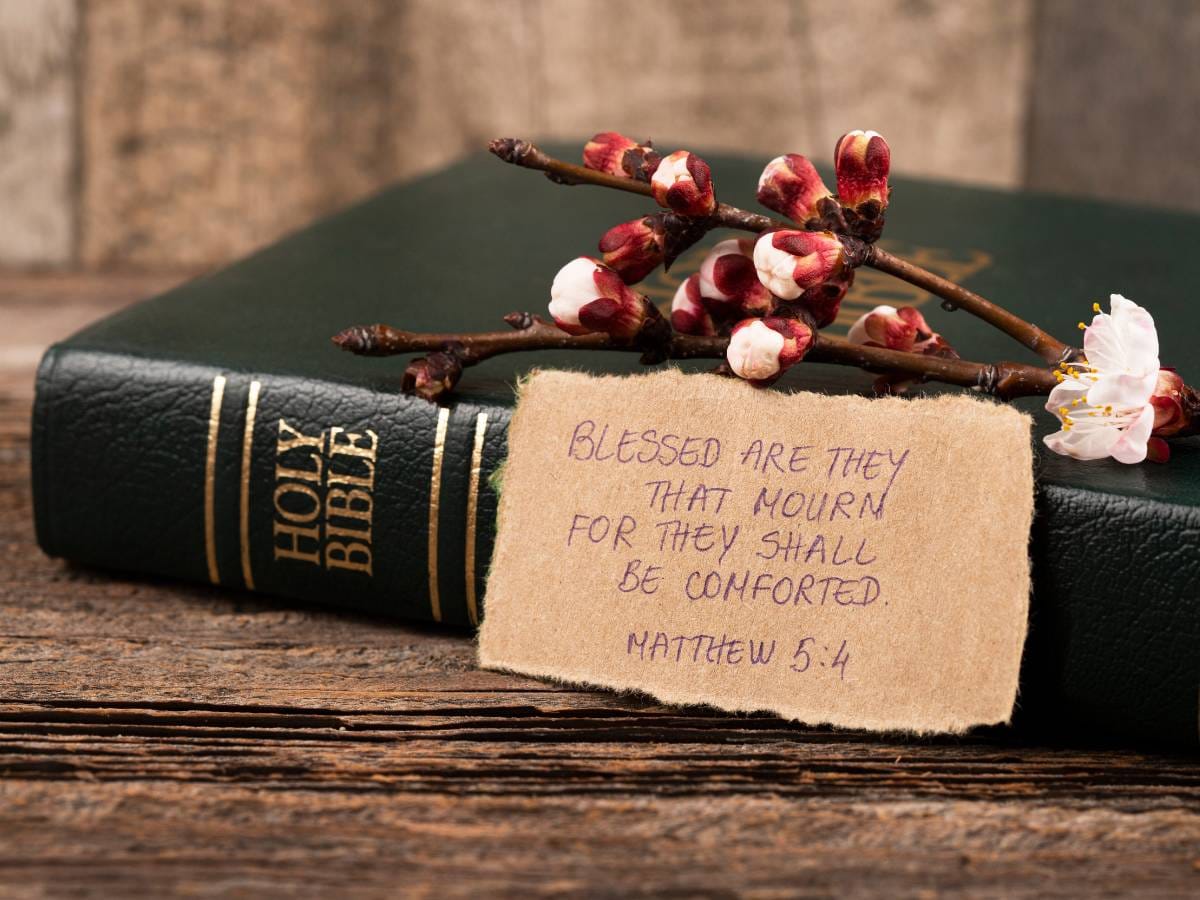 HOLY
BIBLE
BLESSED ARE THEY
THAT MOURN
FOR THEY SHALL
BE COMFORTED.
MATTHEW 5:4